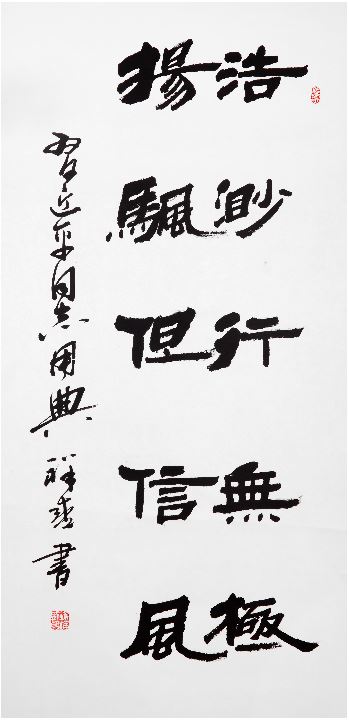 浩渺行無極
揚颿但信風
習近平同志用典 祥春書